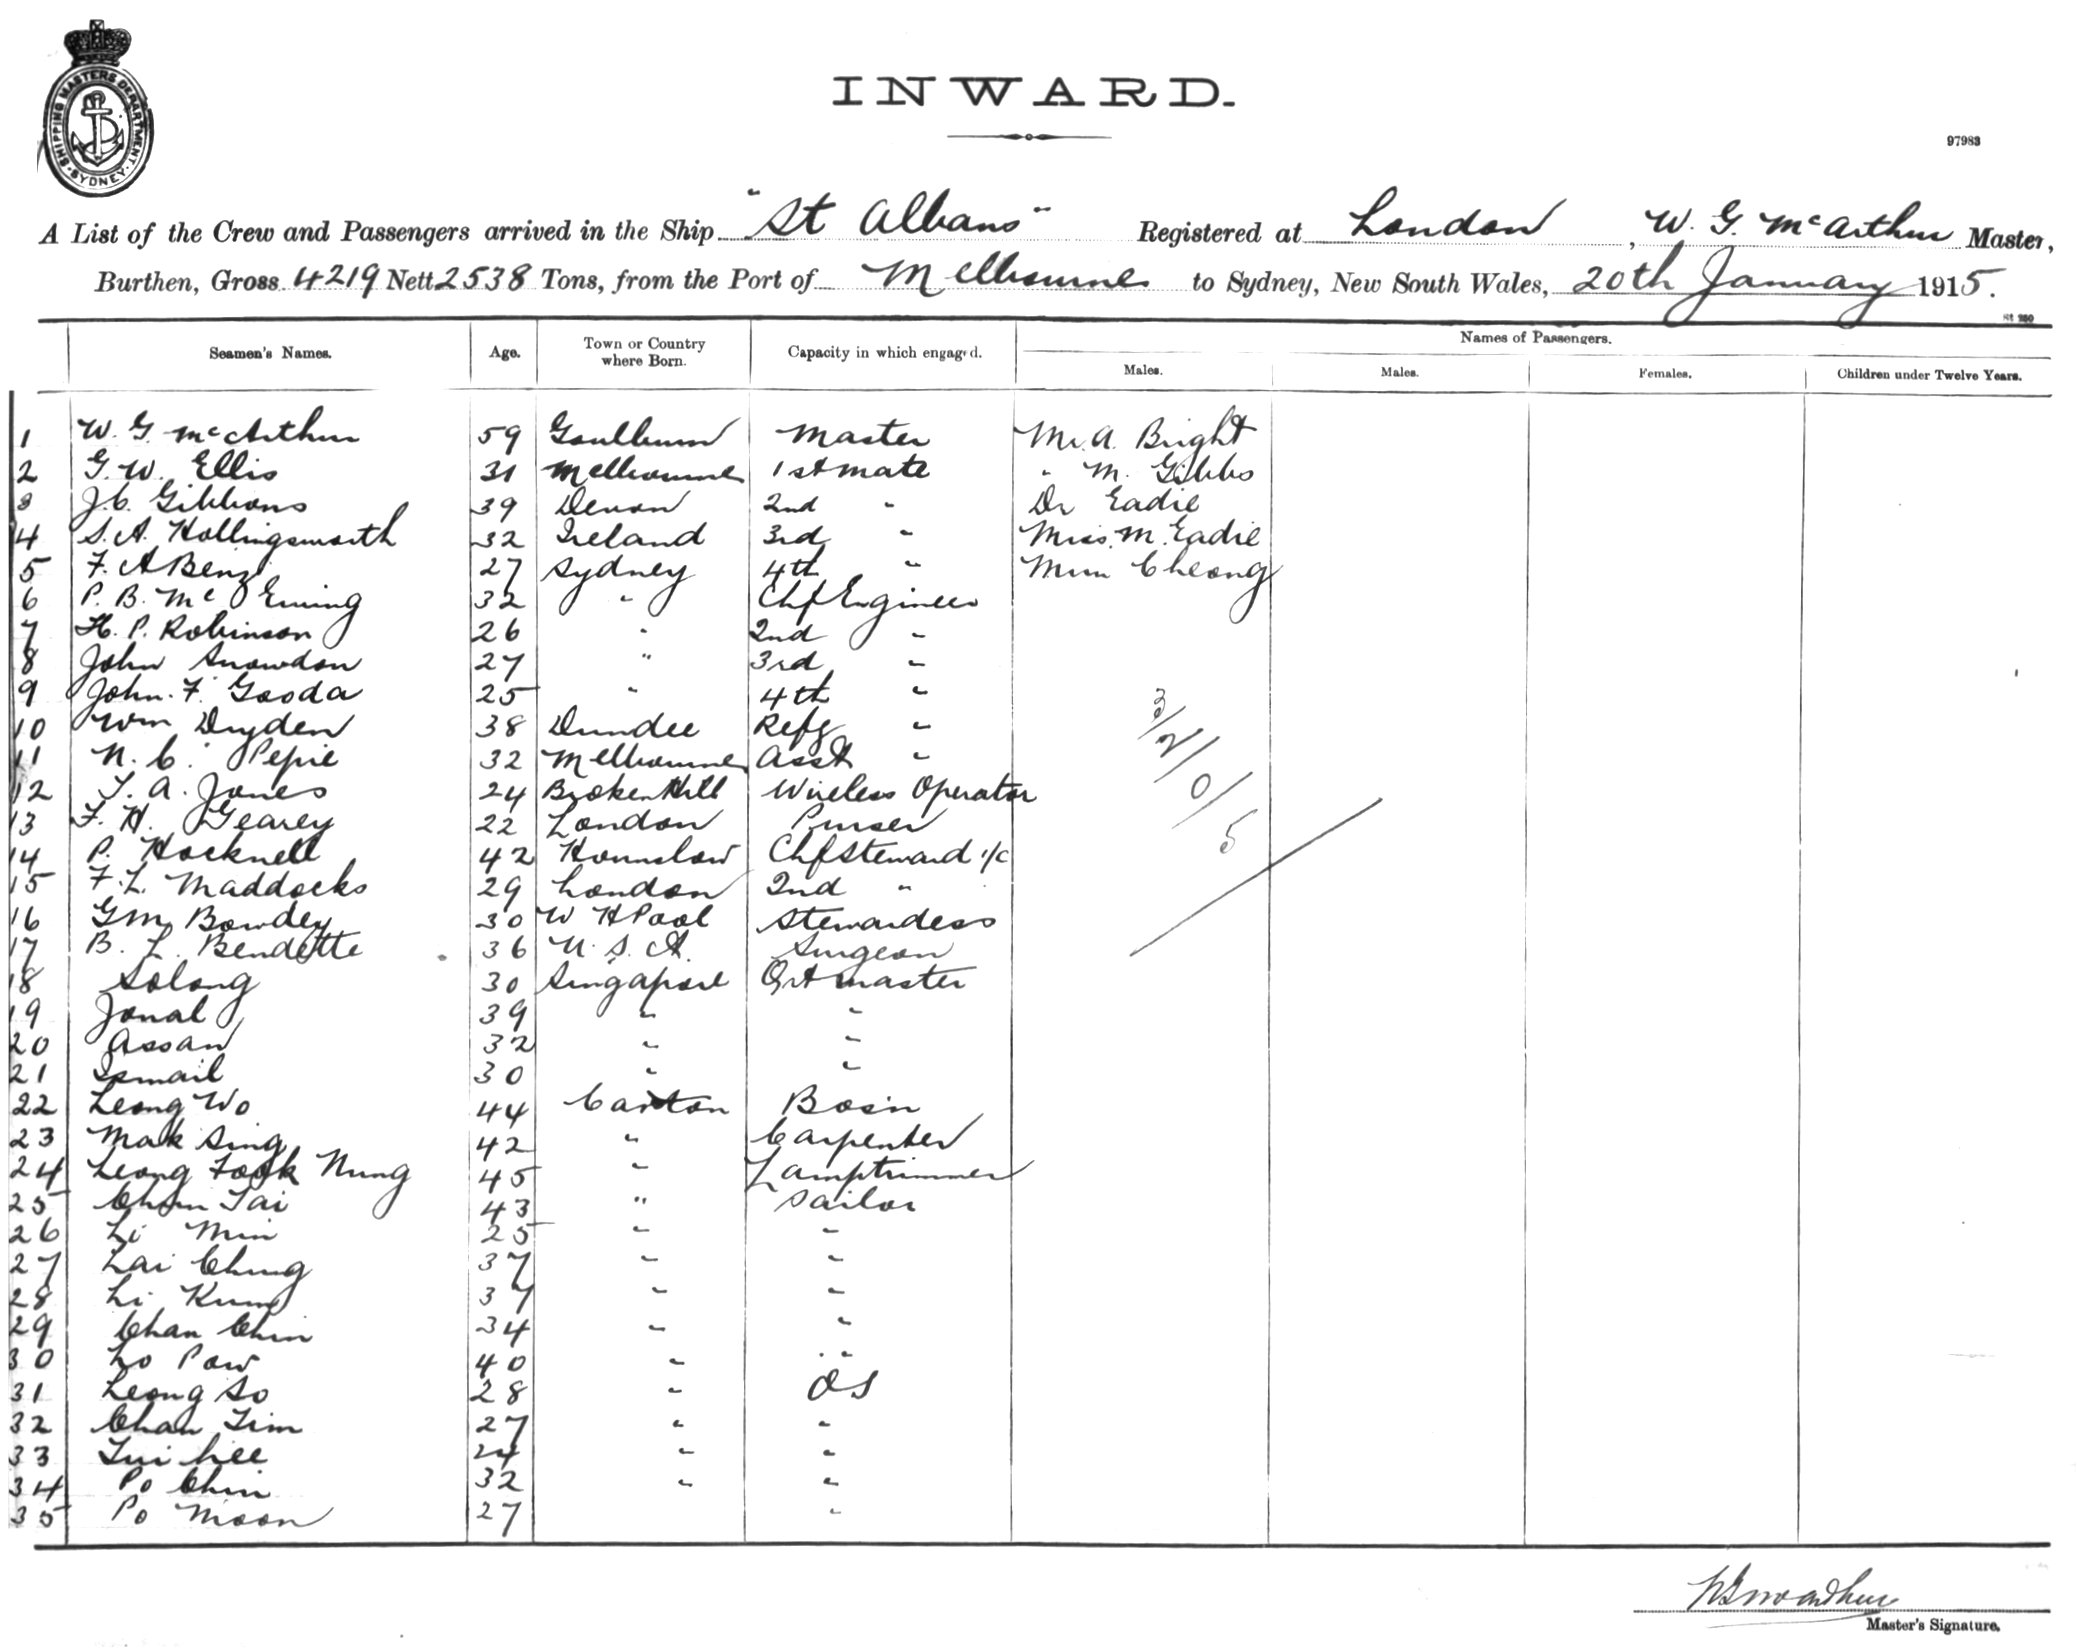 SHIPPING MASTERS DEPARTMENT. SYDNEY.
INWARD.
97983
A List of the Crew and Passengers arrived in the Ship "St Albans" Registered at London, W. G. McArthur Master,
Burthen, Gross 4219 Nett 2538 Tons, from the Port of Melbourne to Sydney, New South Wales, 20th January 1915.
St 280
Seamen's Names. Age. Town or Country where Born. Capacity in which engaged. Names of Passengers.
Males. Males. Females. Children under Twelve Years.
1 W. G. McArthur 59 Goulburn Master Mr. A. Bright
2 G. W. Ellis 31 Melbourne 1st mate " M. Gibbs
3 J. C. Gibbons 39 Devon 2nd " Dr Eadie
4 S. A. Hollingsworth 32 Ireland 3rd " Miss. M. Eadie
5 F. A Benz 27 Sydney 4th " Cheong
6 P. B. Mc Ewing 32 " Chf Engineer
7 H. P. Robinson 26 " 2nd "
8 John Snowdon 27 " 3rd "
9 John. F. Gooda 25 " 4th "
10 Wm Dryden 38 Dundee Refg "
11 N. C. Pepie 32 Melbourne Asst "
12 T. A. Jones 24 Broken Hill Wireless Operator
13 F. H. Gearey 22 London Purser
14 P. Hocknell 42 Hounslow Chf Steward i/c
15 F. L. Maddocks 29 London 2nd "
16 G M Bowdey 30 W H Pool Stewardess
17 B. L. Bendette 36 U. S. A. Surgeon
18 Solong 30 Singapore Qrt master
19 Jonal 39 " "
20 Assan 32 " "
21 Ismail 30 " "
22 Leong Wo 44 Canton Bosin
23 Mak Sing 42 " Carpenter
24 Leong Fook Nung 45 " Lamptrimmer
25 Chun Tai 43 " Sailor
26 Li Min 25 " "
27 Lai Chung 37 " "
28 Li Kum 37 " "
29 Chan Chin 34 " "
30 Lo Paw 40 " "
31 Leong So 28 " OS
32 Chan Tim 27 " "
33 Tui hee 24 " "
34 Po Chin 32 " "
35 Po Moon 27 "
3/2/0/5
Master's Signature.